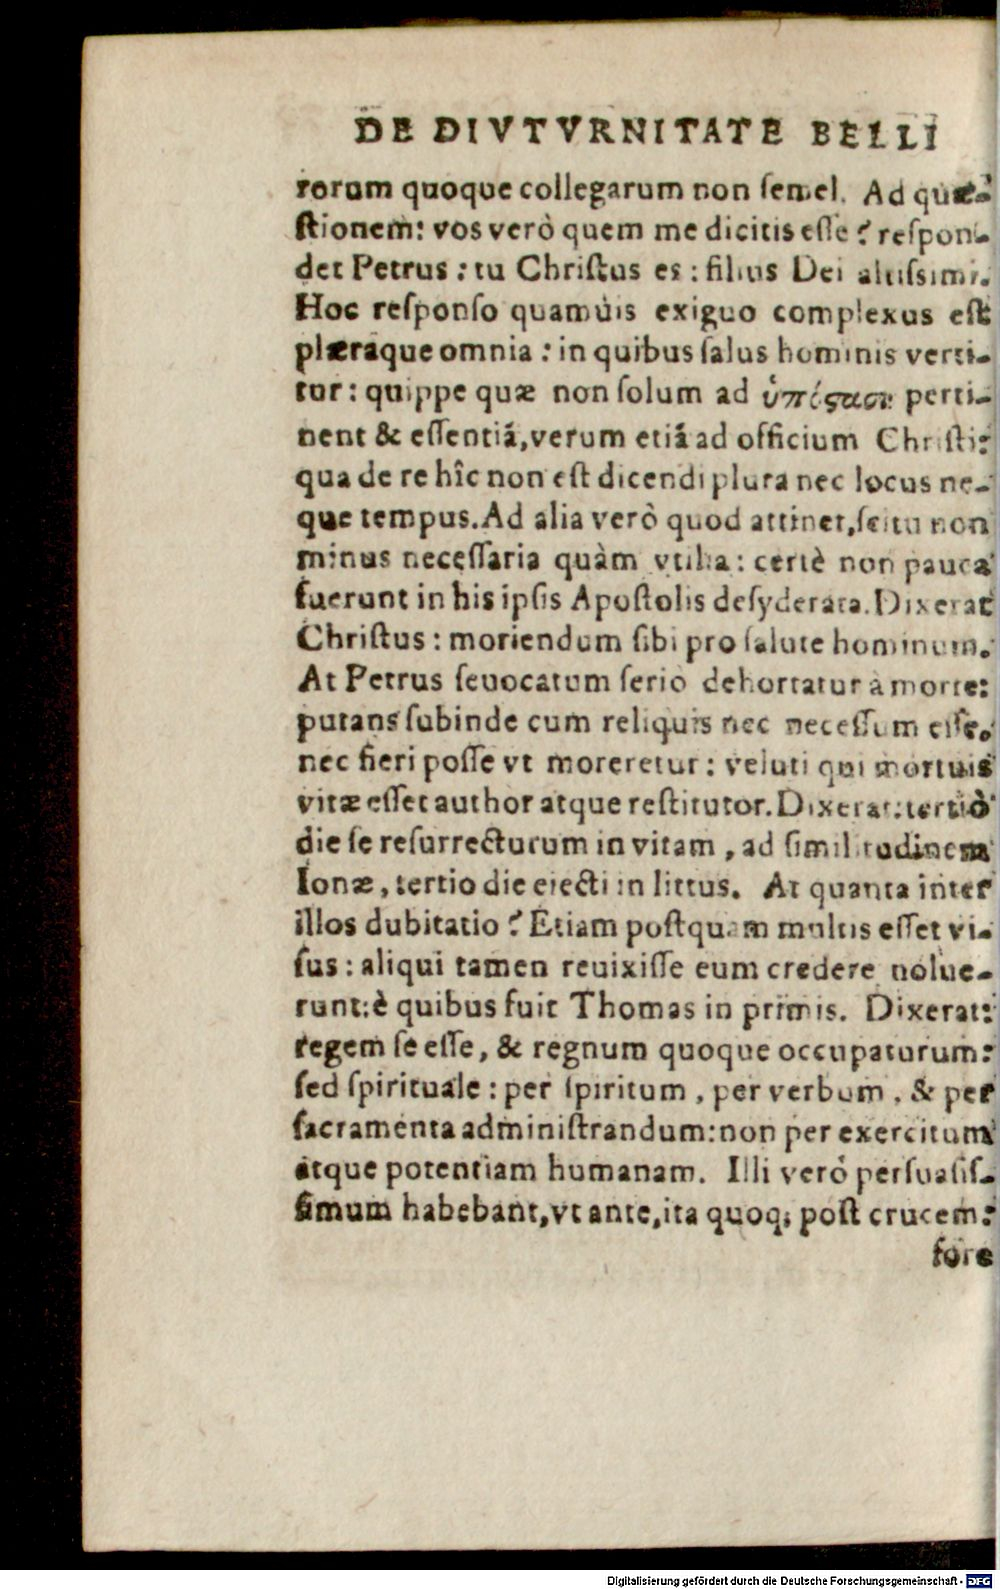 DE DIVTVRNITATE BELLI
rorum quoque collegarum non ſemel. Ad quæ-
ſtionem: vos verò quem me dicitis eſſe? reſpon-
det Petrus: tu Chriſtus es: filius Dei altiſsimi.
Hoc reſponſo quamuis exiguo complexus eſt
plæraque omnia: in quibus ſalus hominis verti-
tur: quippe quæ non ſolum ad perti-
nent & eſſentiã, verum etiã ad officium Chriſti:
qua de re hîc non eſt dicendi plura nec locus ne-
que tempus. Ad alia verò quod attinet, ſcitu non
minus neceſſaria quàm vtilia: certè non pauca
fuerunt in his ipſis Apoſtolis deſyderata. Dixerat
Chriſtus: moriendum ſibi pro ſalute hominum.
At Petrus ſeuocatum ſerio dehortatur à morte:
putans ſubinde cum reliquis nec neceſſum eſſe,
nec fieri poſſe vt moreretur: veluti qui mortuis
vitæ eſſet author atque reſtitutor. Dixerat: tertiò
die ſe reſurrecturum in vitam, ad ſimilitudinem
Ionæ, tertio die eiecti in littus. At quanta inter
illos dubitatio? Etiam poſtquam multis eſſet vi-
ſus: aliqui tamen reuixiſſe eum credere nolue-
runt: è quibus fuit Thomas in primis. Dixerat:
regem ſe eſſe, & regnum quoque occupaturum:
ſed ſpirituale: per ſpiritum, per verbum, & per
ſacramenta adminiſtrandum: non per exercitum
atque potentiam humanam. Illi verò perſuaſiſ-
ſimum habebant, vt ante, ita quoq; poſt crucem:
fore
Digitalisierung gefördert durch die Deutsche Forschungsgemeinschaft - DFG